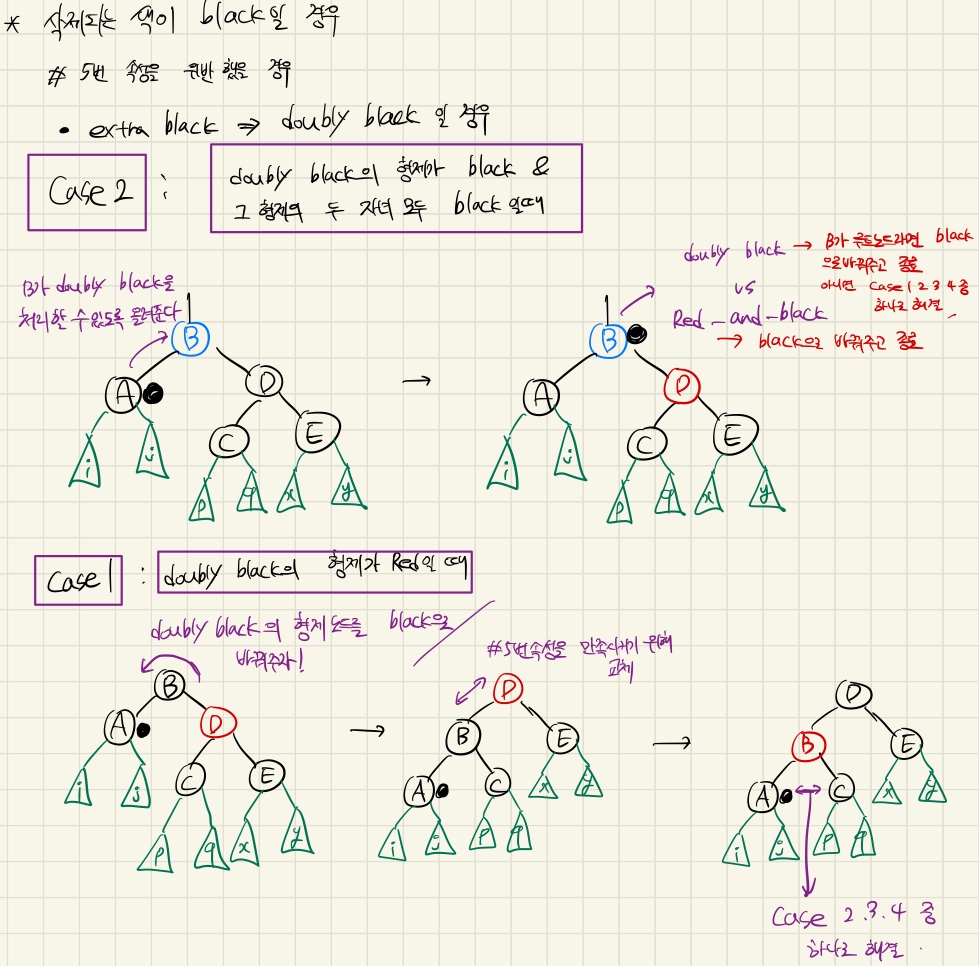 * 삭제되는 색이 black일 경우
# 5번 속성을 위반 했을 경우
• extra black ⇒ doubly black 일 경우
Case 2 :
doubly black의 형제가 black &
그 형제의 두 자녀 모두 black 일때
B가 doubly black을
처리할 수 있도록 올려준다
doubly black → B가 루트노드라면 black
으로 바꿔주고 종료
아니면 Case 1 2 3 4 중
하나로 해결
vs
Red-and-black
→ black으로 바꿔주고 종료
B
A D
C E
i j
p q x y
→
B
A D
C E
i j
p q x y
Case 1 :
doubly black의 형제가 Red일 때
doubly black의 형제 노드를 black으로
바꿔주자!
#5번속성을 만족시키기 위해
교체
B
A D
C E
i j
p q x y
→
D
B E
A C x y
i j p q
→
D
B E
A C x y
i j p q
Case 2.3.4 중
하나로 해결